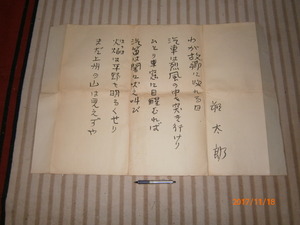 わが故郷に帰れる日
汽車は烈風の中を突き行けり
ひとり車窓に目醒むれば
汽笛は闇に吠え叫び
火焔は平野を明るくせり
まだ上州の山は見えずや
朔太郎
2017/11/18